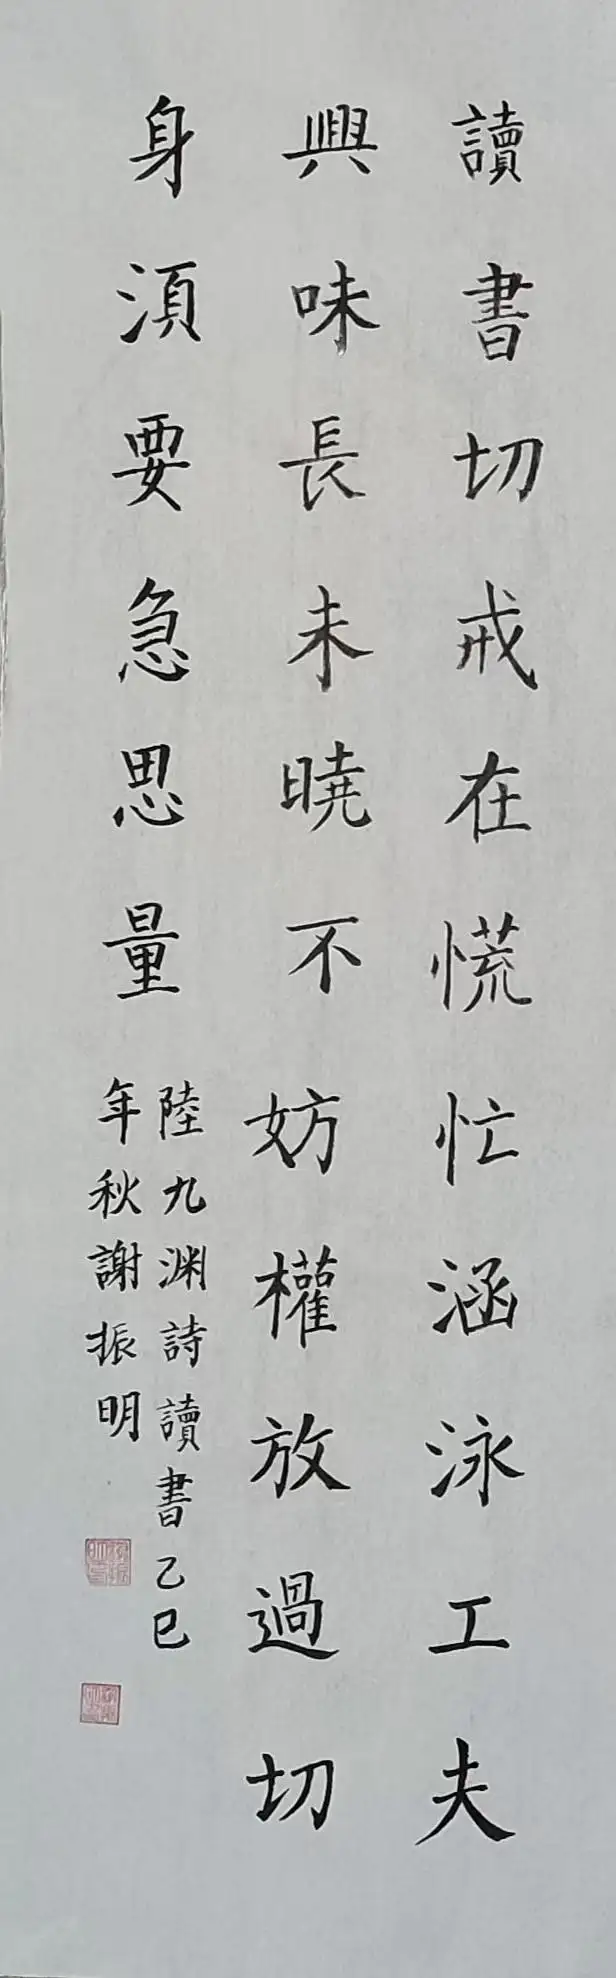 讀書切戒在慌忙涵泳工夫
興味長未曉不妨權放過切
身湏要急思量
陸九渊詩讀書乙巳
年秋謝振明